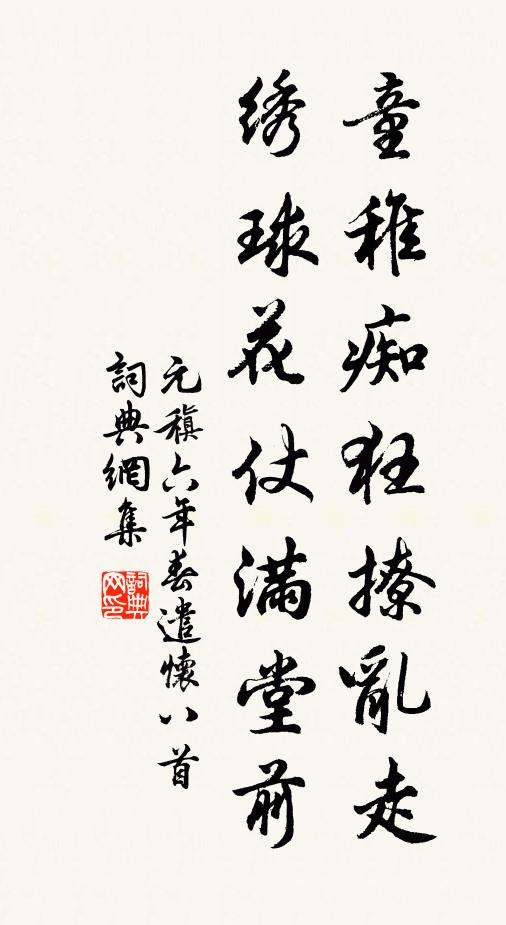 童稚痴狂撩亂走
绣球花仗满堂前
元稹六年春遣懷八首
詞典網集
詞典网印